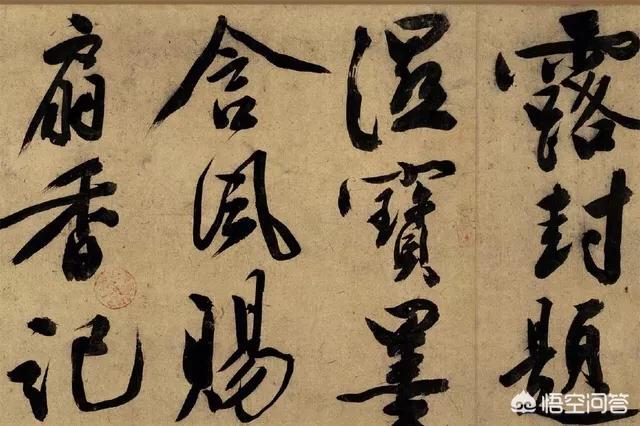 露封題
濕寶墨
含風賜
扇香記
悟空问答